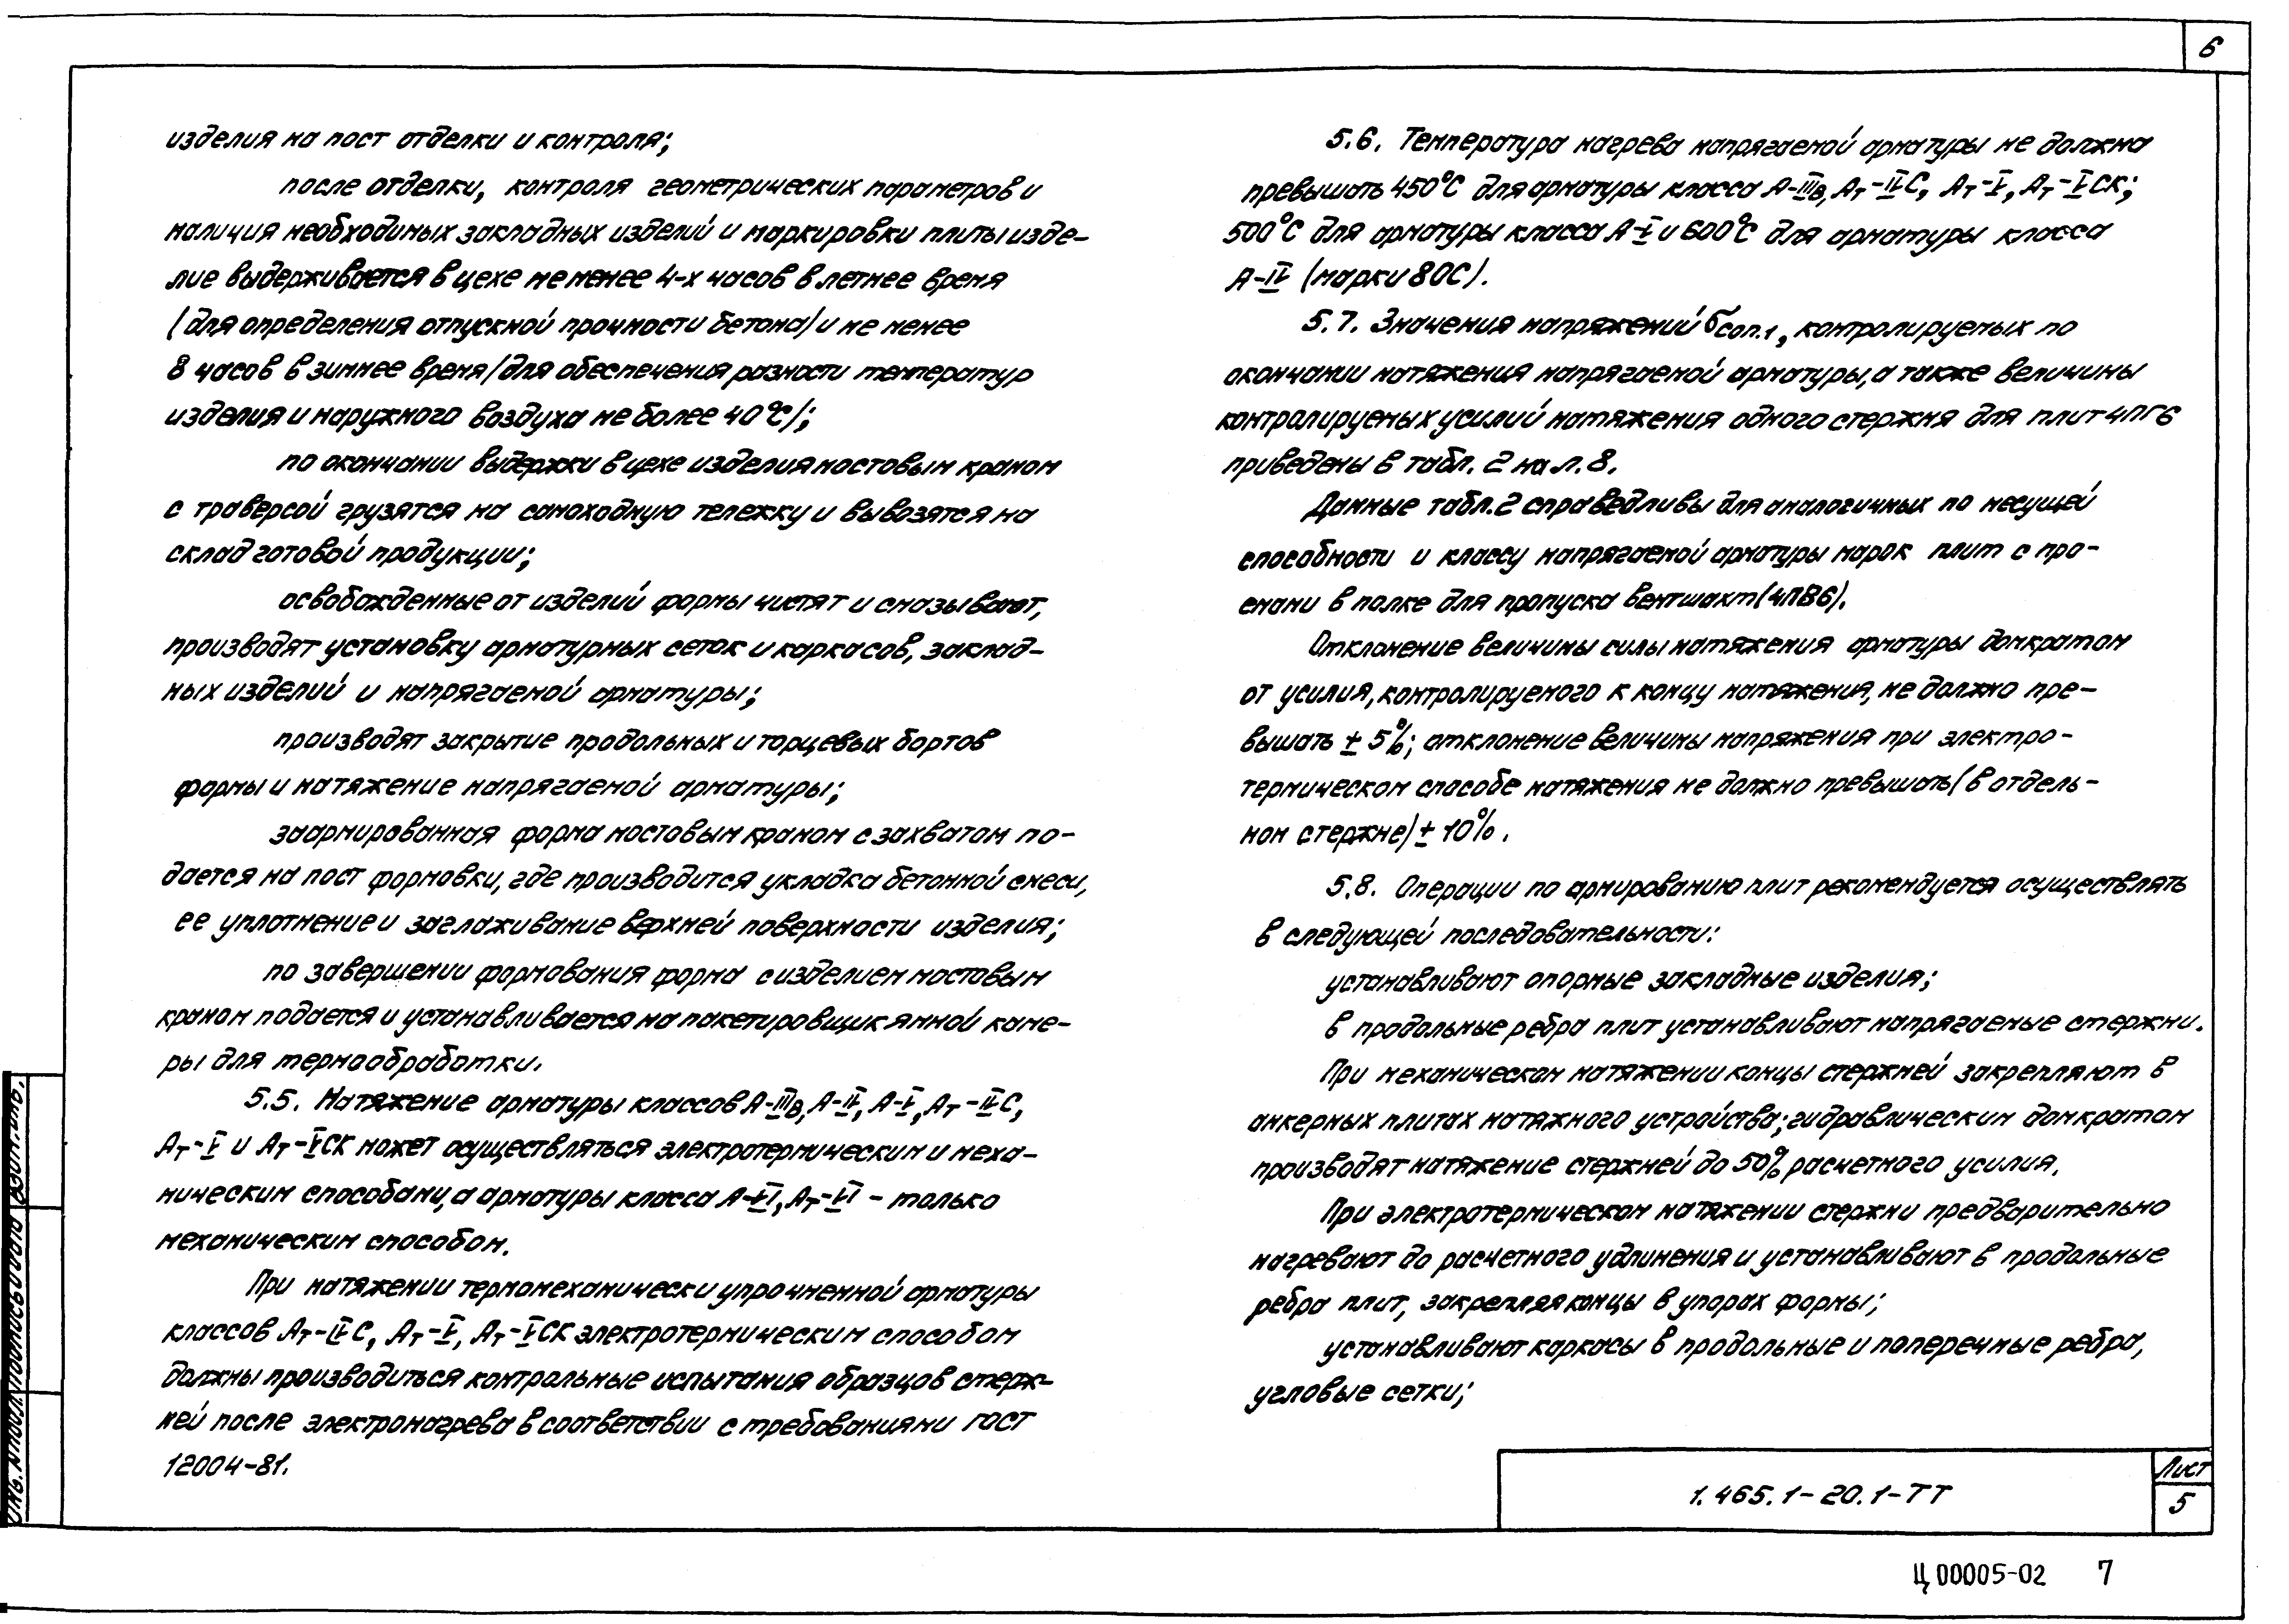 6
изделия на пост отделки и контроля;
после отделки, контроля геометрических параметров и
наличия необходимых закладных изделий и маркировки плиты изде-
лие выдерживается в цехе не менее 4-х часов в летнее время
/для определения отпускной прочности бетона/ и не менее
8 часов в зимнее время /для обеспечения разности температур
изделия и наружного воздуха не более 40°С/;
по окончании выдержки в цехе изделия мостовым краном
с траверсой грузятся на самоходную тележку и вывозятся на
склад готовой продукции;
освобожденные от изделий формы чистят и смазывают,
производят установку арматурных сеток и каркасов, заклад-
ных изделий и напрягаемой арматуры;
производят закрытие продольных и торцевых бортов
формы и натяжение напрягаемой арматуры;
заармированная форма мостовым краном с захватом по-
дается на пост формовки, где производится укладка бетонной смеси,
ее уплотнение и заглаживание верхней поверхности изделия;
по завершении формования форма с изделием мостовым
краном подается и устанавливается на пакетировщик ямной каме-
ры для термообработки.
5.5. Натяжение арматуры классов А-IIIв, А-IV, А-V, Ат-IVС,
Ат-V и Ат-VСК может осуществляться электротермическим и меха-
ническим способами, а арматуры класса А-VI, Ат-VI – только
механическим способом.
При натяжении термомеханически упрочненной арматуры
классов Ат-IVС, Ат-V, Ат-VСК электротермическим способом
должны производиться контрольные испытания образцов стерж-
ней после электронагрева в соответствии с требованиями ГОСТ
12004-81.
5.6. Температура нагрева напрягаемой арматуры не должна
превышать 450°С для арматуры класса А-IIIв, Ат-IVС, Ат-V, Ат-VСК;
500°С для арматуры класса А-V и 600°С для арматуры класса
А-IV (марки 80С).
5.7. Значения напряжений σсоп.1, контролируемых по
окончании натяжения напрягаемой арматуры, а также величины
контролируемых усилий натяжения одного стержня для плит 4ПГ6
приведены в табл. 2 на л. 8.
Данные табл. 2 справедливы для аналогичных по несущей
способности и классу напрягаемой арматуры марок плит с про-
емами в полке для пропуска вентшахт (4ПВ6).
Отклонение величины силы натяжения арматуры домкратом
от усилия, контролируемого к концу натяжения, не должно пре-
вышать ± 5%; отклонение величины напряжения при электро-
термическом способе натяжения не должно превышать (в отдель-
ном стержне) ± 10%.
5.8. Операции по армированию плит рекомендуется осуществлять
в следующей последовательности:
устанавливают опорные закладные изделия;
в продольные ребра плит устанавливают напрягаемые стержни.
При механическом натяжении концы стержней закрепляют в
анкерных плитах натяжного устройства; гидравлическим домкратом
производят натяжение стержней до 50% расчетного усилия.
При электротермическом натяжении стержни предварительно
нагревают до расчетного удлинения и устанавливают в продольные
ребра плит, закрепляя концы в упорах формы;
устанавливают каркасы в продольные и поперечные ребра,
угловые сетки;
Инв. № подл. Подпись и дата Взам. инв.
1.465.1-20.1-ТТ
Лист
5
Ц 00005-02 7